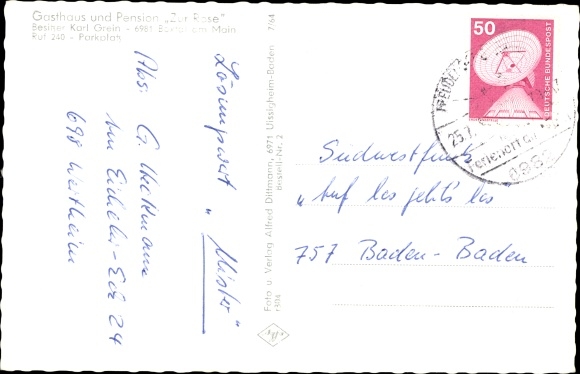 Gasthaus und Pension „Zur Rose"
Besitzer Karl Grein - 6981 am Main
Ruf 240 - Parkplatz
Lösungswort „Mister"
Abs: G.
Eichels-Eck 24
698 Wertheim
Foto u. Verlag Alfred Dittmann, 6971 Uissigheim-Baden 7/64
Bestell-Nr. 2
1306
50
DEUTSCHE BUNDESPOST
25.7.
6983
Südwestfunk
„Auf los geht's los
757 Baden-Baden